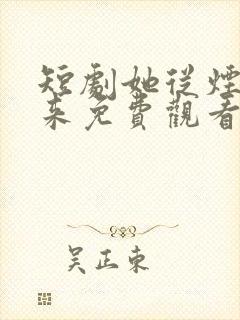 短劇她從煙
來免費觀看
吴正東